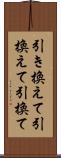 引き換えて引
換えて引換て